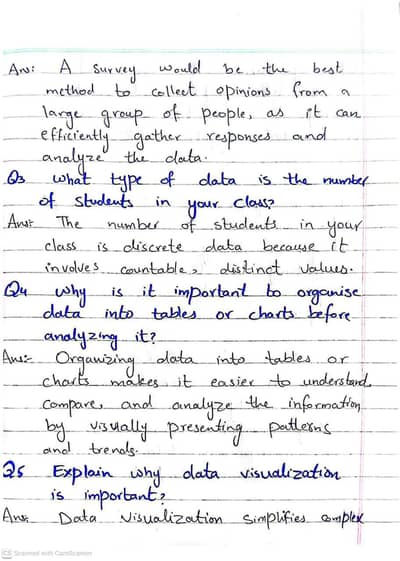 Ans: A survey would be the best
method to collect opinions from a
large group of people, as it can
efficiently gather responses and
analyze the data.
Q3 what type of data is the number
of students in your class?
Ans:- The number of students in your
class is discrete data because it
involves countable, distinct values.
Q4 why is it important to organise
data into tables or charts before
analyzing it?
Ans:- Organizing data into tables or
charts makes it easier to understand,
compare, and analyze the information
by visually presenting patterns
and trends.
Q5 Explain why data visualization
is important?
Ans: Data visualization simplifies complex
CS Scanned with CamScanner